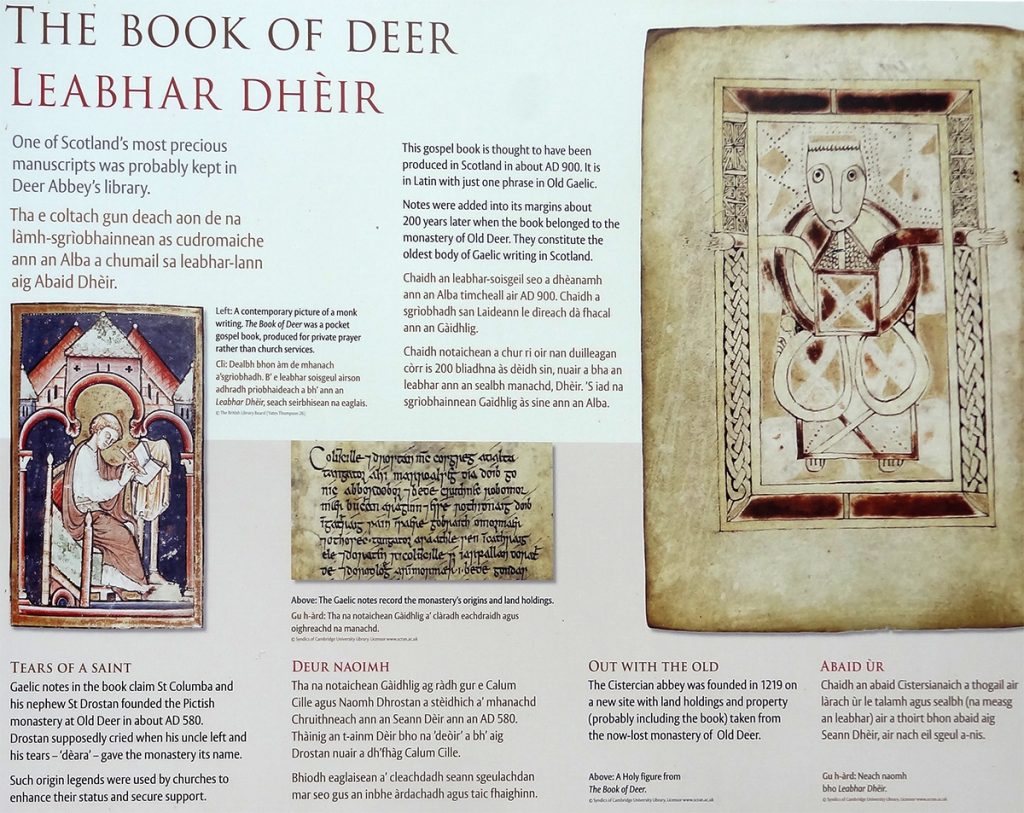 THE BOOK OF DEER
LEABHAR DHÈIR
One of Scotland's most precious
manuscripts was probably kept in
Deer Abbey's library.
Tha e coltach gun deach aon de na
làmh-sgrìobhainnean as cudromaiche
ann an Alba a chumail sa leabhar-lann
aig Abaid Dhèir.
This gospel book is thought to have been
produced in Scotland in about AD 900. It is
in Latin with just one phrase in Old Gaelic.
Notes were added into its margins about
200 years later when the book belonged to the
monastery of Old Deer. They constitute the
oldest body of Gaelic writing in Scotland.
Chaidh an leabhar-soisgeil seo a dhèanamh
ann an Alba timcheall air AD 900. Chaidh a
sgrìobhadh san Laideann le dìreach dà fhacal
ann an Gàidhlig.
Chaidh notaichean a chur ri oir nan duilleagan
còrr is 200 bliadhna às dèidh sin, nuair a bha an
leabhar ann an sealbh manachd, Dhèir. 'S iad na
sgrìobhainnean Gaidhlig às sine ann an Alba.
Left: A contemporary picture of a monk
writing. The Book of Deer was a pocket
gospel book, produced for private prayer
rather than church services.
Clì: Dealbh bhon àm de mhanach
a'sgrìobhadh. B' e leabhar soisgeul airson
adhradh prìobhaideach a bh' ann an
Leabhar Dhèir, seach seirbhisean na eaglais.
© The British Library Board (Yates Thompson 26)
Above: The Gaelic notes record the monastery's origins and land holdings.
Gu h-àrd: Tha na notaichean Gàidhlig a' clàradh eachdraidh agus
oighreachd na manachd.
© Syndics of Cambridge University Library. Licensor www.scran.ac.uk
TEARS OF A SAINT
Gaelic notes in the book claim St Columba and
his nephew St Drostan founded the Pictish
monastery at Old Deer in about AD 580.
Drostan supposedly cried when his uncle left and
his tears – 'dèara' – gave the monastery its name.
Such origin legends were used by churches to
enhance their status and secure support.
DEUR NAOIMH
Tha na notaichean Gàidhlig ag ràdh gur e Calum
Cille agus Naomh Dhrostan a stèidhich a' mhanachd
Chruithneach ann an Seann Dèir ann an AD 580.
Thàinig an t-ainm Dèir bho na 'deòir' a bh' aig
Drostan nuair a dh'fhàg Calum Cille.
Bhiodh eaglaisean a' cleachdadh seann sgeulachdan
mar seo gus an inbhe àrdachadh agus taic fhaighinn.
OUT WITH THE OLD
The Cistercian abbey was founded in 1219 on
a new site with land holdings and property
(probably including the book) taken from
the now-lost monastery of Old Deer.
Above: A Holy figure from
The Book of Deer.
© Syndics of Cambridge University Library. Licensor www.scran.ac.uk
ABAID ÙR
Chaidh an abaid Cistersianaich a thogail air
làrach ùr le talamh agus sealbh (na measg
an leabhar) air a thoirt bhon abaid aig
Seann Dhèir, air nach eil sgeul a-nis.
Gu h-àrd: Neach naomh
bho Leabhar Dhèir.
© Syndics of Cambridge University Library. Licensor www.scran.ac.uk